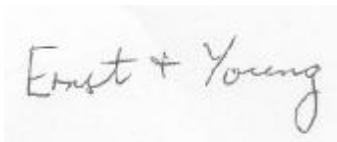 Ernst + Young